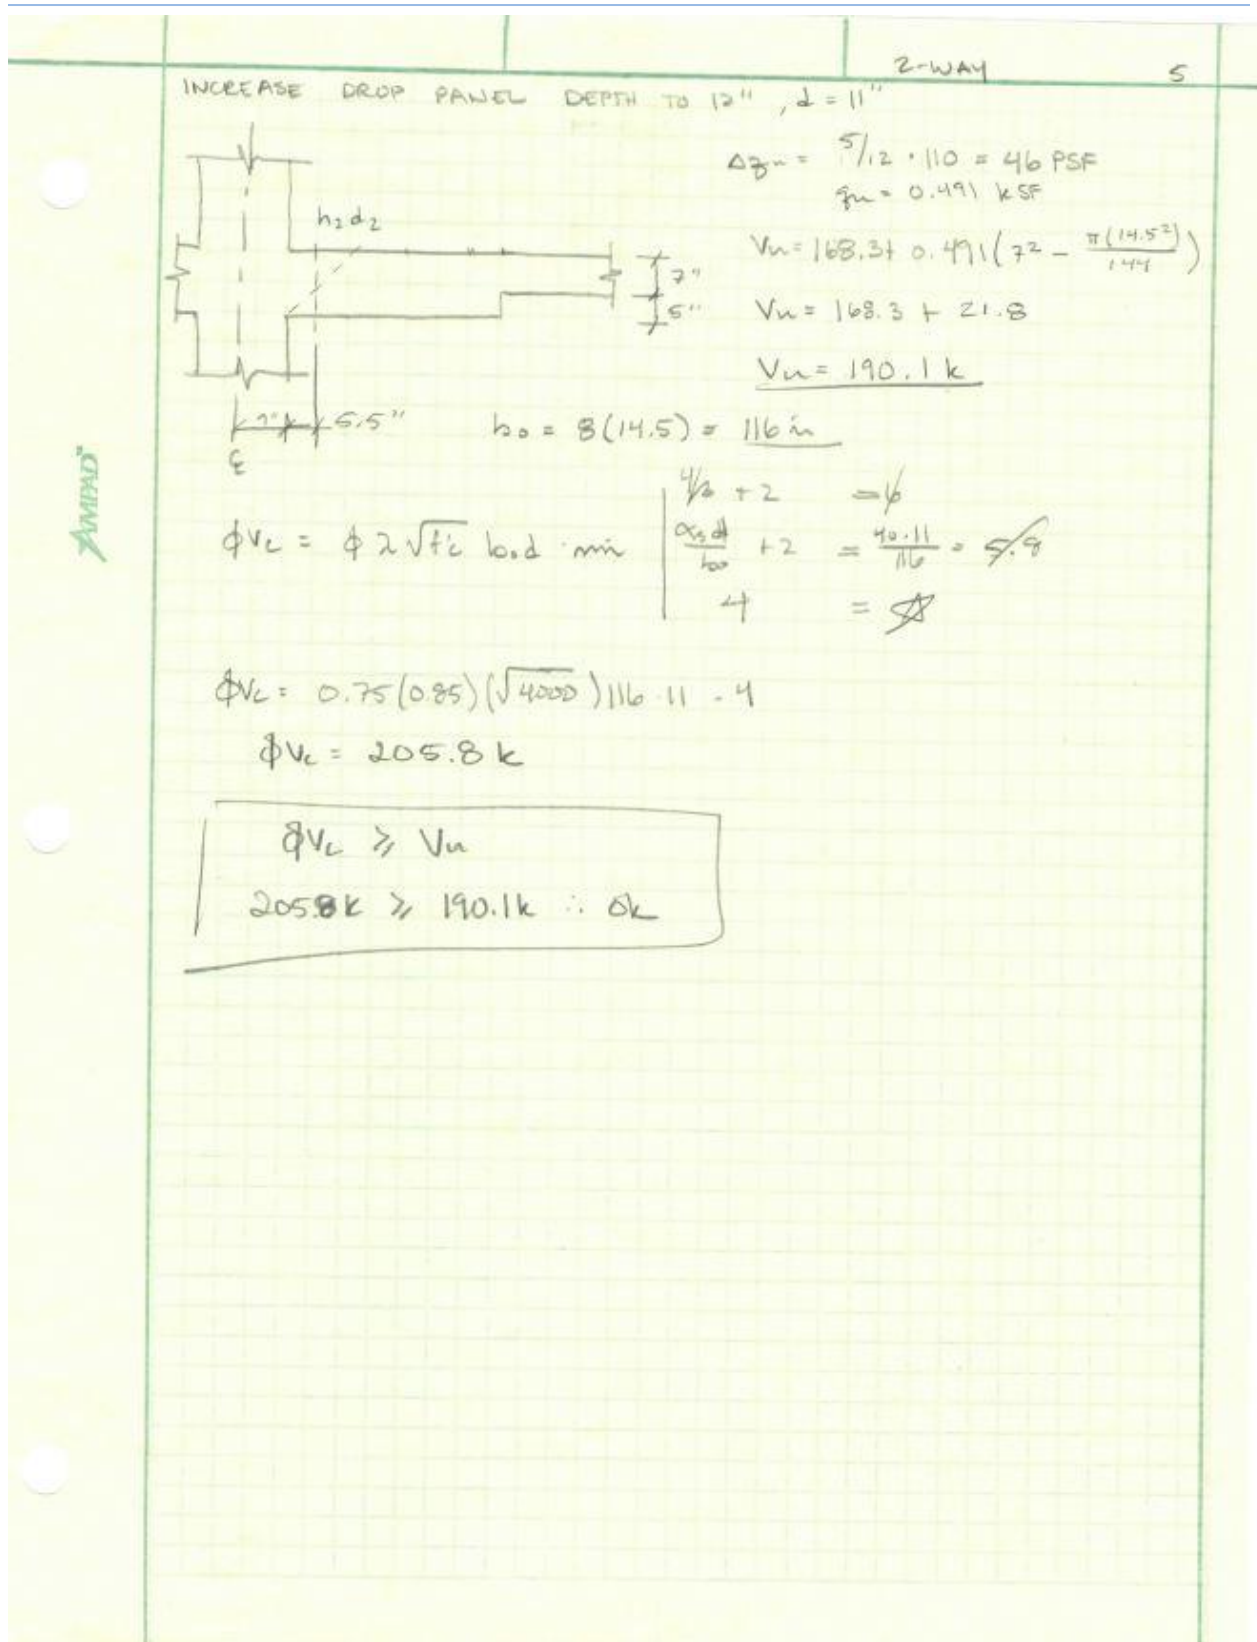 2-WAY 5
INCREASE DROP PANEL DEPTH TO 12", d = 11"
Δqu = 5/12 · 110 = 46 PSF
qu = 0.491 KSF
h2 d2
Vu = 168.3 + 0.491(7² - π(14.5²)/144)
7"
5"
Vu = 168.3 + 21.8
Vu = 190.1 k
5.5"
bo = 8(14.5) = 116 in
℄
AMPAD
4/β + 2 = 6
φVc = φ λ √f'c bod · min αsd/bo + 2 = 40·11/116 = 5.8
4 =
φVc = 0.75(0.85)(√4000)116·11·4
φVc = 205.8 k
φVc ≥ Vu
205.8k ≥ 190.1k ∴ ok